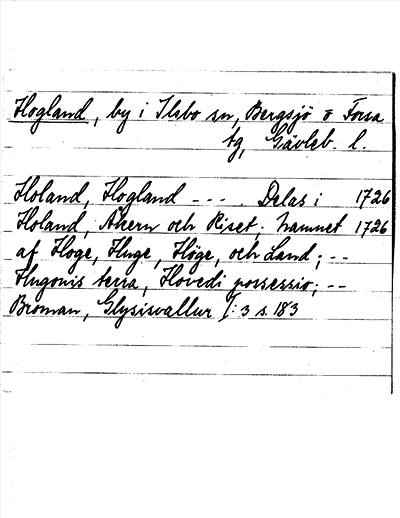 Hogland, by i Ilsbo sn, Bergsjö o Forsa
tg, Gävleb. l.
Holand, Hogland --- . Delas i 1726
Holand, Åkern och Riset; namnet 1726
af Hoge, Huge, Höge, och Land; --
Hugonis terra, Hovedi possessio; --
Broman, Glysisvallur I:3 s. 183